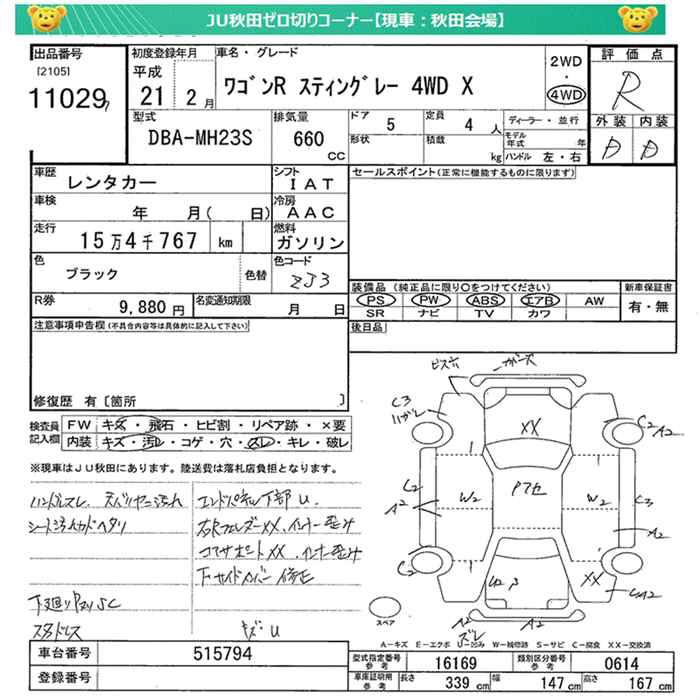 JU秋田ゼロ切りコーナー【現車：秋田会場】
出品番号
[2105]
11029
初度登録年月
平成
21 2月
車名・グレード
ワゴンR スティングレー 4WD X
2WD
・
4WD
評価点
R
外装 内装
D D
型式
DBA-MH23S
排気量
660
CC
ドア 5
定員 4人
形状
積載 kg
ディーラー・並行
モデル年式 年
ハンドル 左・右
車歴
レンタカー
シフト
IAT
車検
年 月( 日)
冷房
AAC
走行
15万4千767 km
燃料
ガソリン
色
ブラック
色替
色コード
ZJ3
R券
9,880円
名変通知期限
月 日
セールスポイント(正常に機能するものに限ります)
装備品 (純正品に限り○をつけてください)
PS PW ABS エアB AW
SR ナビ TV カワ
新車保証書
有・無
後日品
注意事項申告欄(不具合内容等は具体的に記入して下さい)
修復歴 有[箇所 ]
検査員記入欄
FW キズ・飛石・ヒビ割・リペア跡・×要
内装 キズ・汚レ・コゲ・穴・スレ・キレ・破レ
※現車はJU秋田にあります。陸送費は落札店負担となります。
ハンドルスレ
シート汚れ
ヘタリ
エンドパネル下部U
右Rフェンダー XX、インナー歪み
コアサポート XX、インナー歪み
下サイドメンバー 修正
下廻り
SC
スタドレス
キズU
C3
XX
C2
A2
C2
A2
W2
W2
C3
A2
C2
XX
A2
A2
ズレ
スペア
A－キズ E－エクボ U－凹み W－補修跡 S－サビ C－腐食 XX－交換済
車台番号
515794
登録番号
型式指定番号参考
16169
類別区分番号参考
0614
車庫証明用参考
長さ 339 cm
幅 147 cm
高さ 167 cm